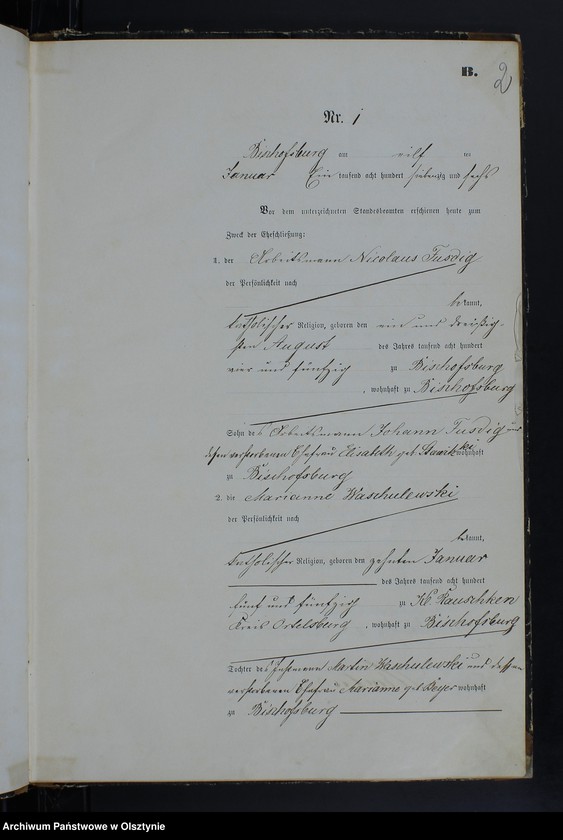 B. 2
Nr. 1
Bischofsburg am eilf ten
Januar Ein tausend acht hundert siebenzig und sechs
Vor dem unterzeichneten Standesbeamten erschienen heute zum
Zweck der Eheschließung:
1. der Arbeitsmann Nicolaus Tusdig
der Persönlichkeit nach
bekannt,
katholischer Religion, geboren den ein und dreißig-
sten August des Jahres tausend acht hundert
vier und fünfzig zu Bischofsburg
, wohnhaft zu Bischofsburg
Sohn des Arbeitsmann Johann Tusdig und
dessen verstorbenen Ehefrau Elisabeth geb wohnhaft
zu Bischofsburg
2. die Marianne Waschulewski
der Persönlichkeit nach
bekannt,
katholischer Religion, geboren den zehnten Januar
des Jahres tausend acht hundert
fünf und fünfzig zu Kl. Rauschken
Kreis Ortelsburg , wohnhaft zu Bischofsburg
Tochter des Instmann Martin Waschulewski und dessen
verstorbenen Ehefrau Marianne geb Beyer wohnhaft
zu Bischofsburg
Archiwum Państwowe w Olsztynie